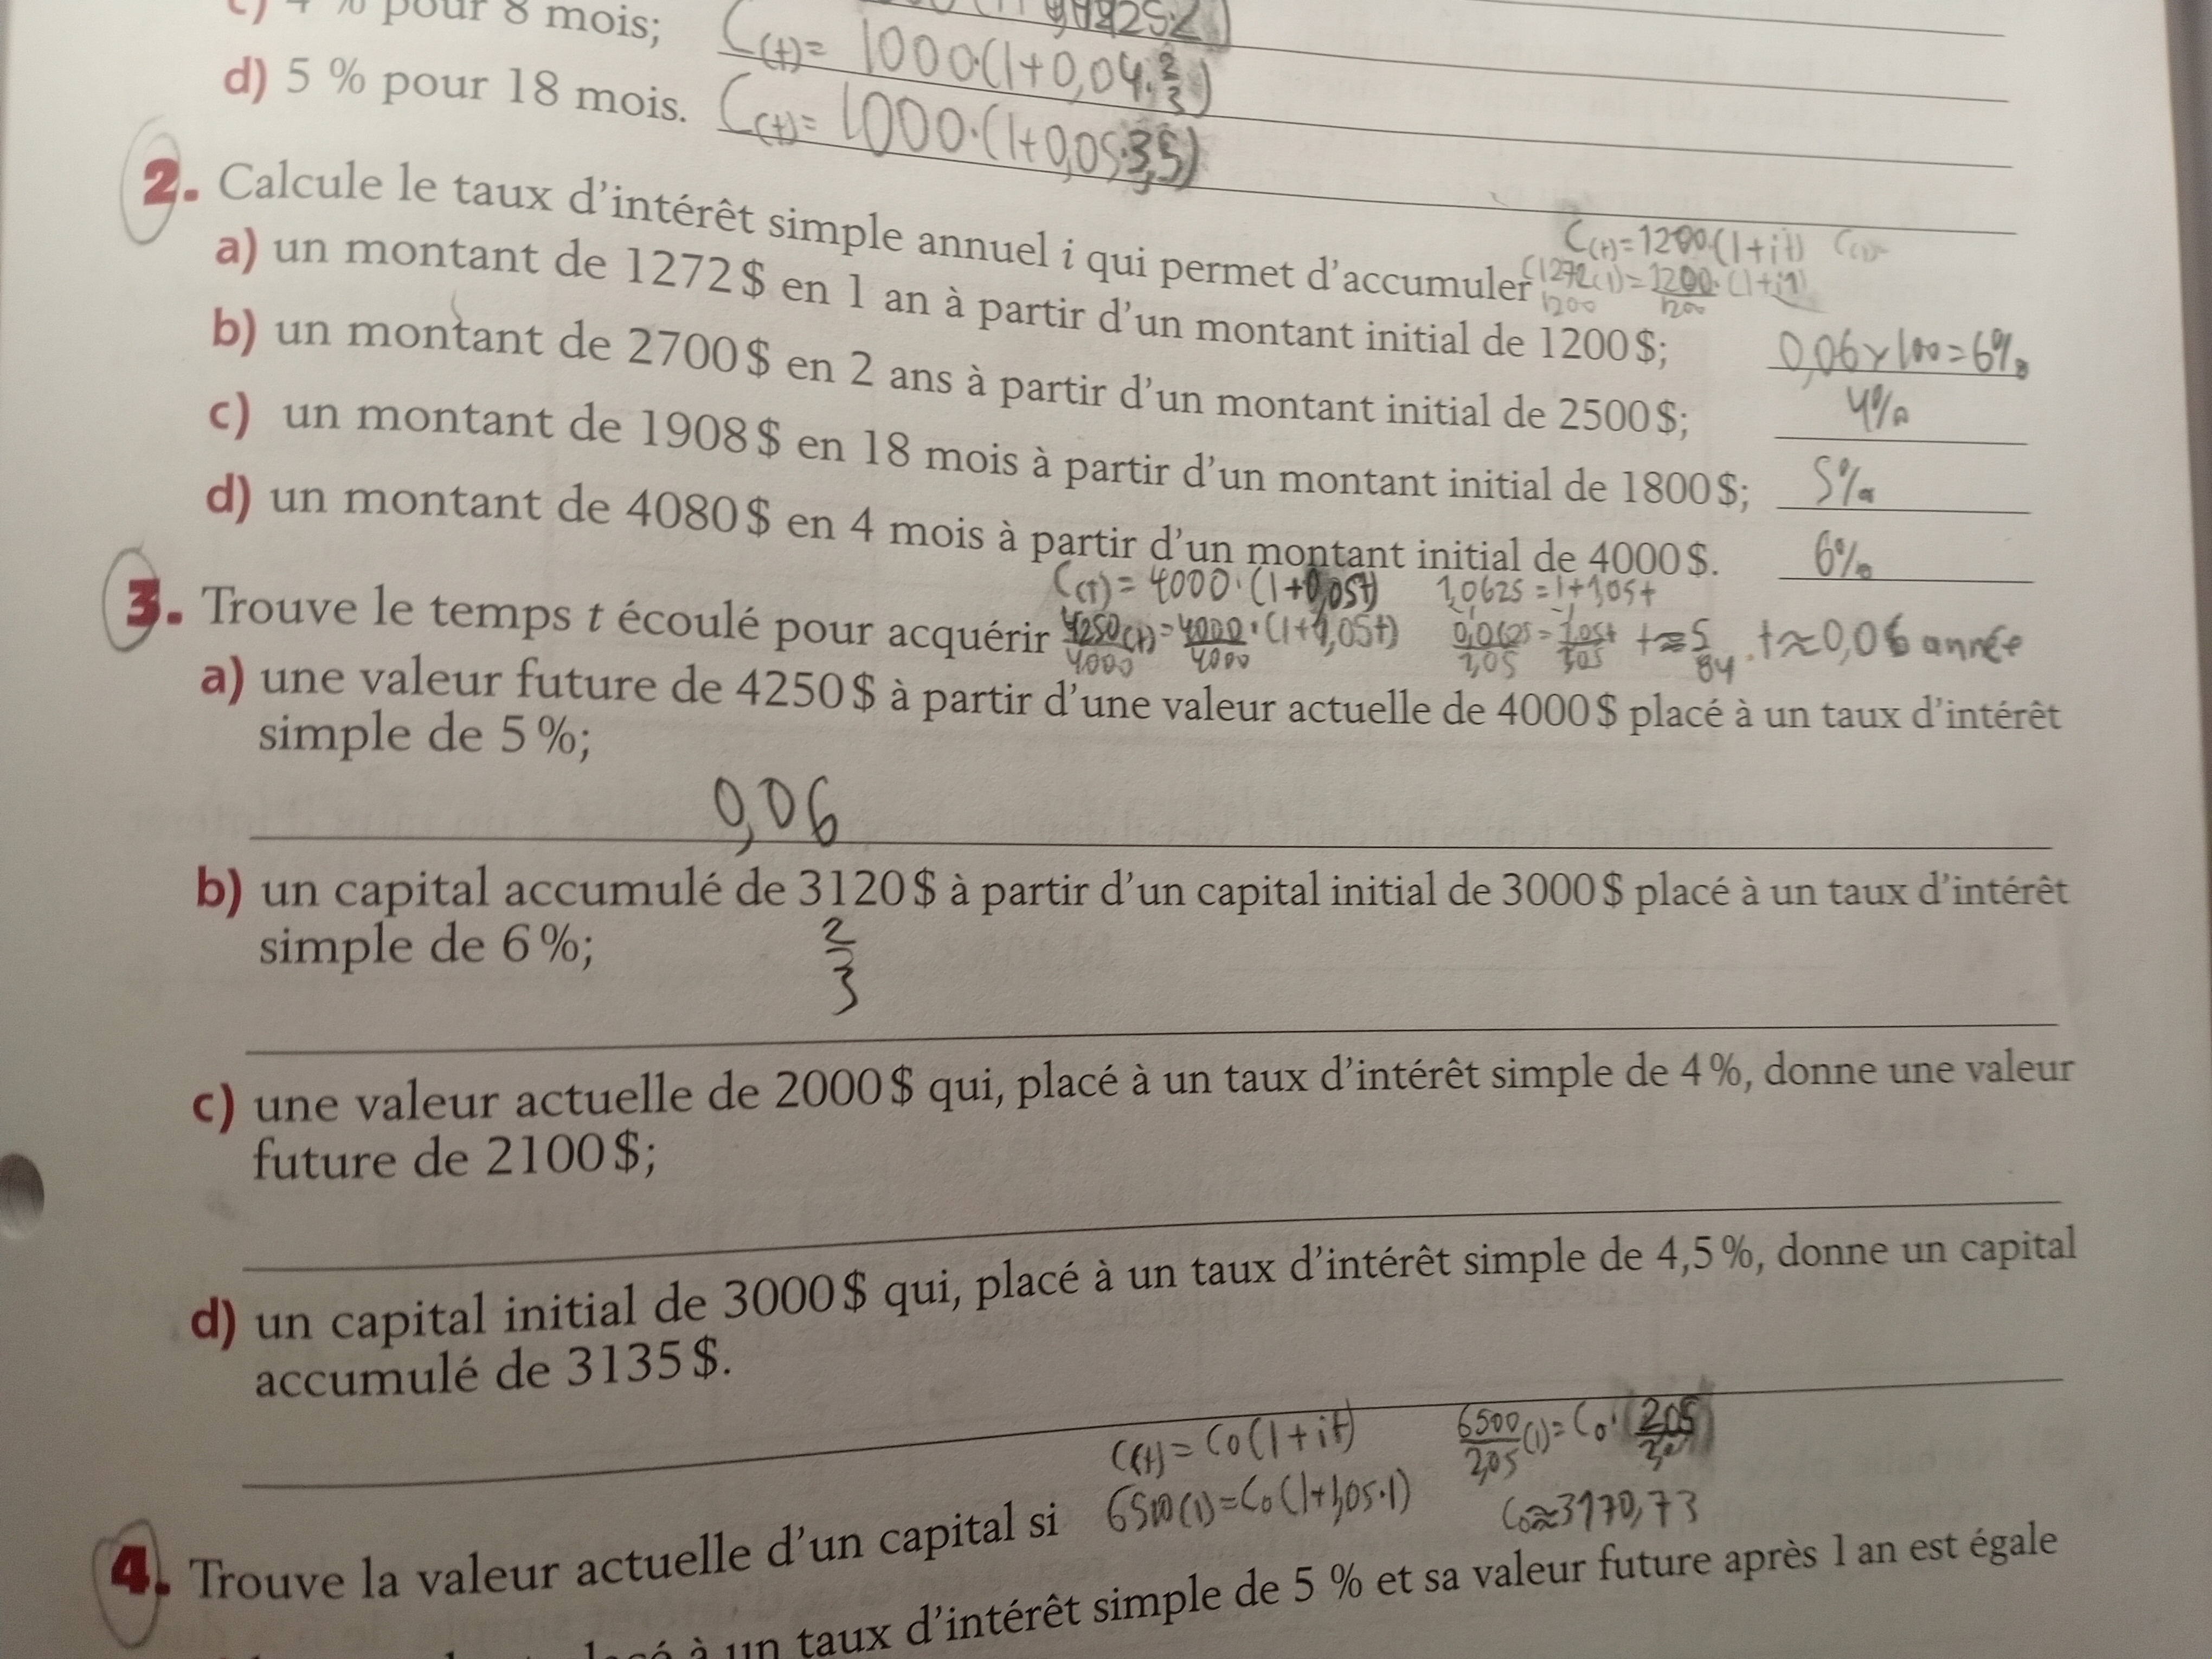 pour 8 mois; C(t)= 1000·(1+0,04·2/3)
d) 5 % pour 18 mois. C(t)= 1000·(1+0,05·3,5)
2. Calcule le taux d'intérêt simple annuel i qui permet d'accumuler
C(t)=1200·(1+it)
1272(1)=1200·(1+i1)
1200 1200
a) un montant de 1272 $ en 1 an à partir d'un montant initial de 1200 $; 0,06×100=6%
b) un montant de 2700 $ en 2 ans à partir d'un montant initial de 2500 $; 4%
c) un montant de 1908 $ en 18 mois à partir d'un montant initial de 1800 $; 5%
d) un montant de 4080 $ en 4 mois à partir d'un montant initial de 4000 $. 6%
C(t) = 4000·(1+0,05t) 1,0625 = 1+1,05t
3. Trouve le temps t écoulé pour acquérir 4250(t)=4000·(1+1,05t) 0,0625=1,05t t≈5 t≈0,06 année
4000 4000 1,05 1,05 84
a) une valeur future de 4250 $ à partir d'une valeur actuelle de 4000 $ placé à un taux d'intérêt
simple de 5 %;
0,06
b) un capital accumulé de 3120 $ à partir d'un capital initial de 3000 $ placé à un taux d'intérêt
simple de 6 %; 2/3
c) une valeur actuelle de 2000 $ qui, placé à un taux d'intérêt simple de 4 %, donne une valeur
future de 2100 $;
d) un capital initial de 3000 $ qui, placé à un taux d'intérêt simple de 4,5 %, donne un capital
accumulé de 3135 $.
C(t) = C0(1+it) 6500(1)=C0·(2,05)
2,05 2,05
6500(1)=C0(1+1,05·1) C0≈3170,73
4. Trouve la valeur actuelle d'un capital si
à un taux d'intérêt simple de 5 % et sa valeur future après 1 an est égale